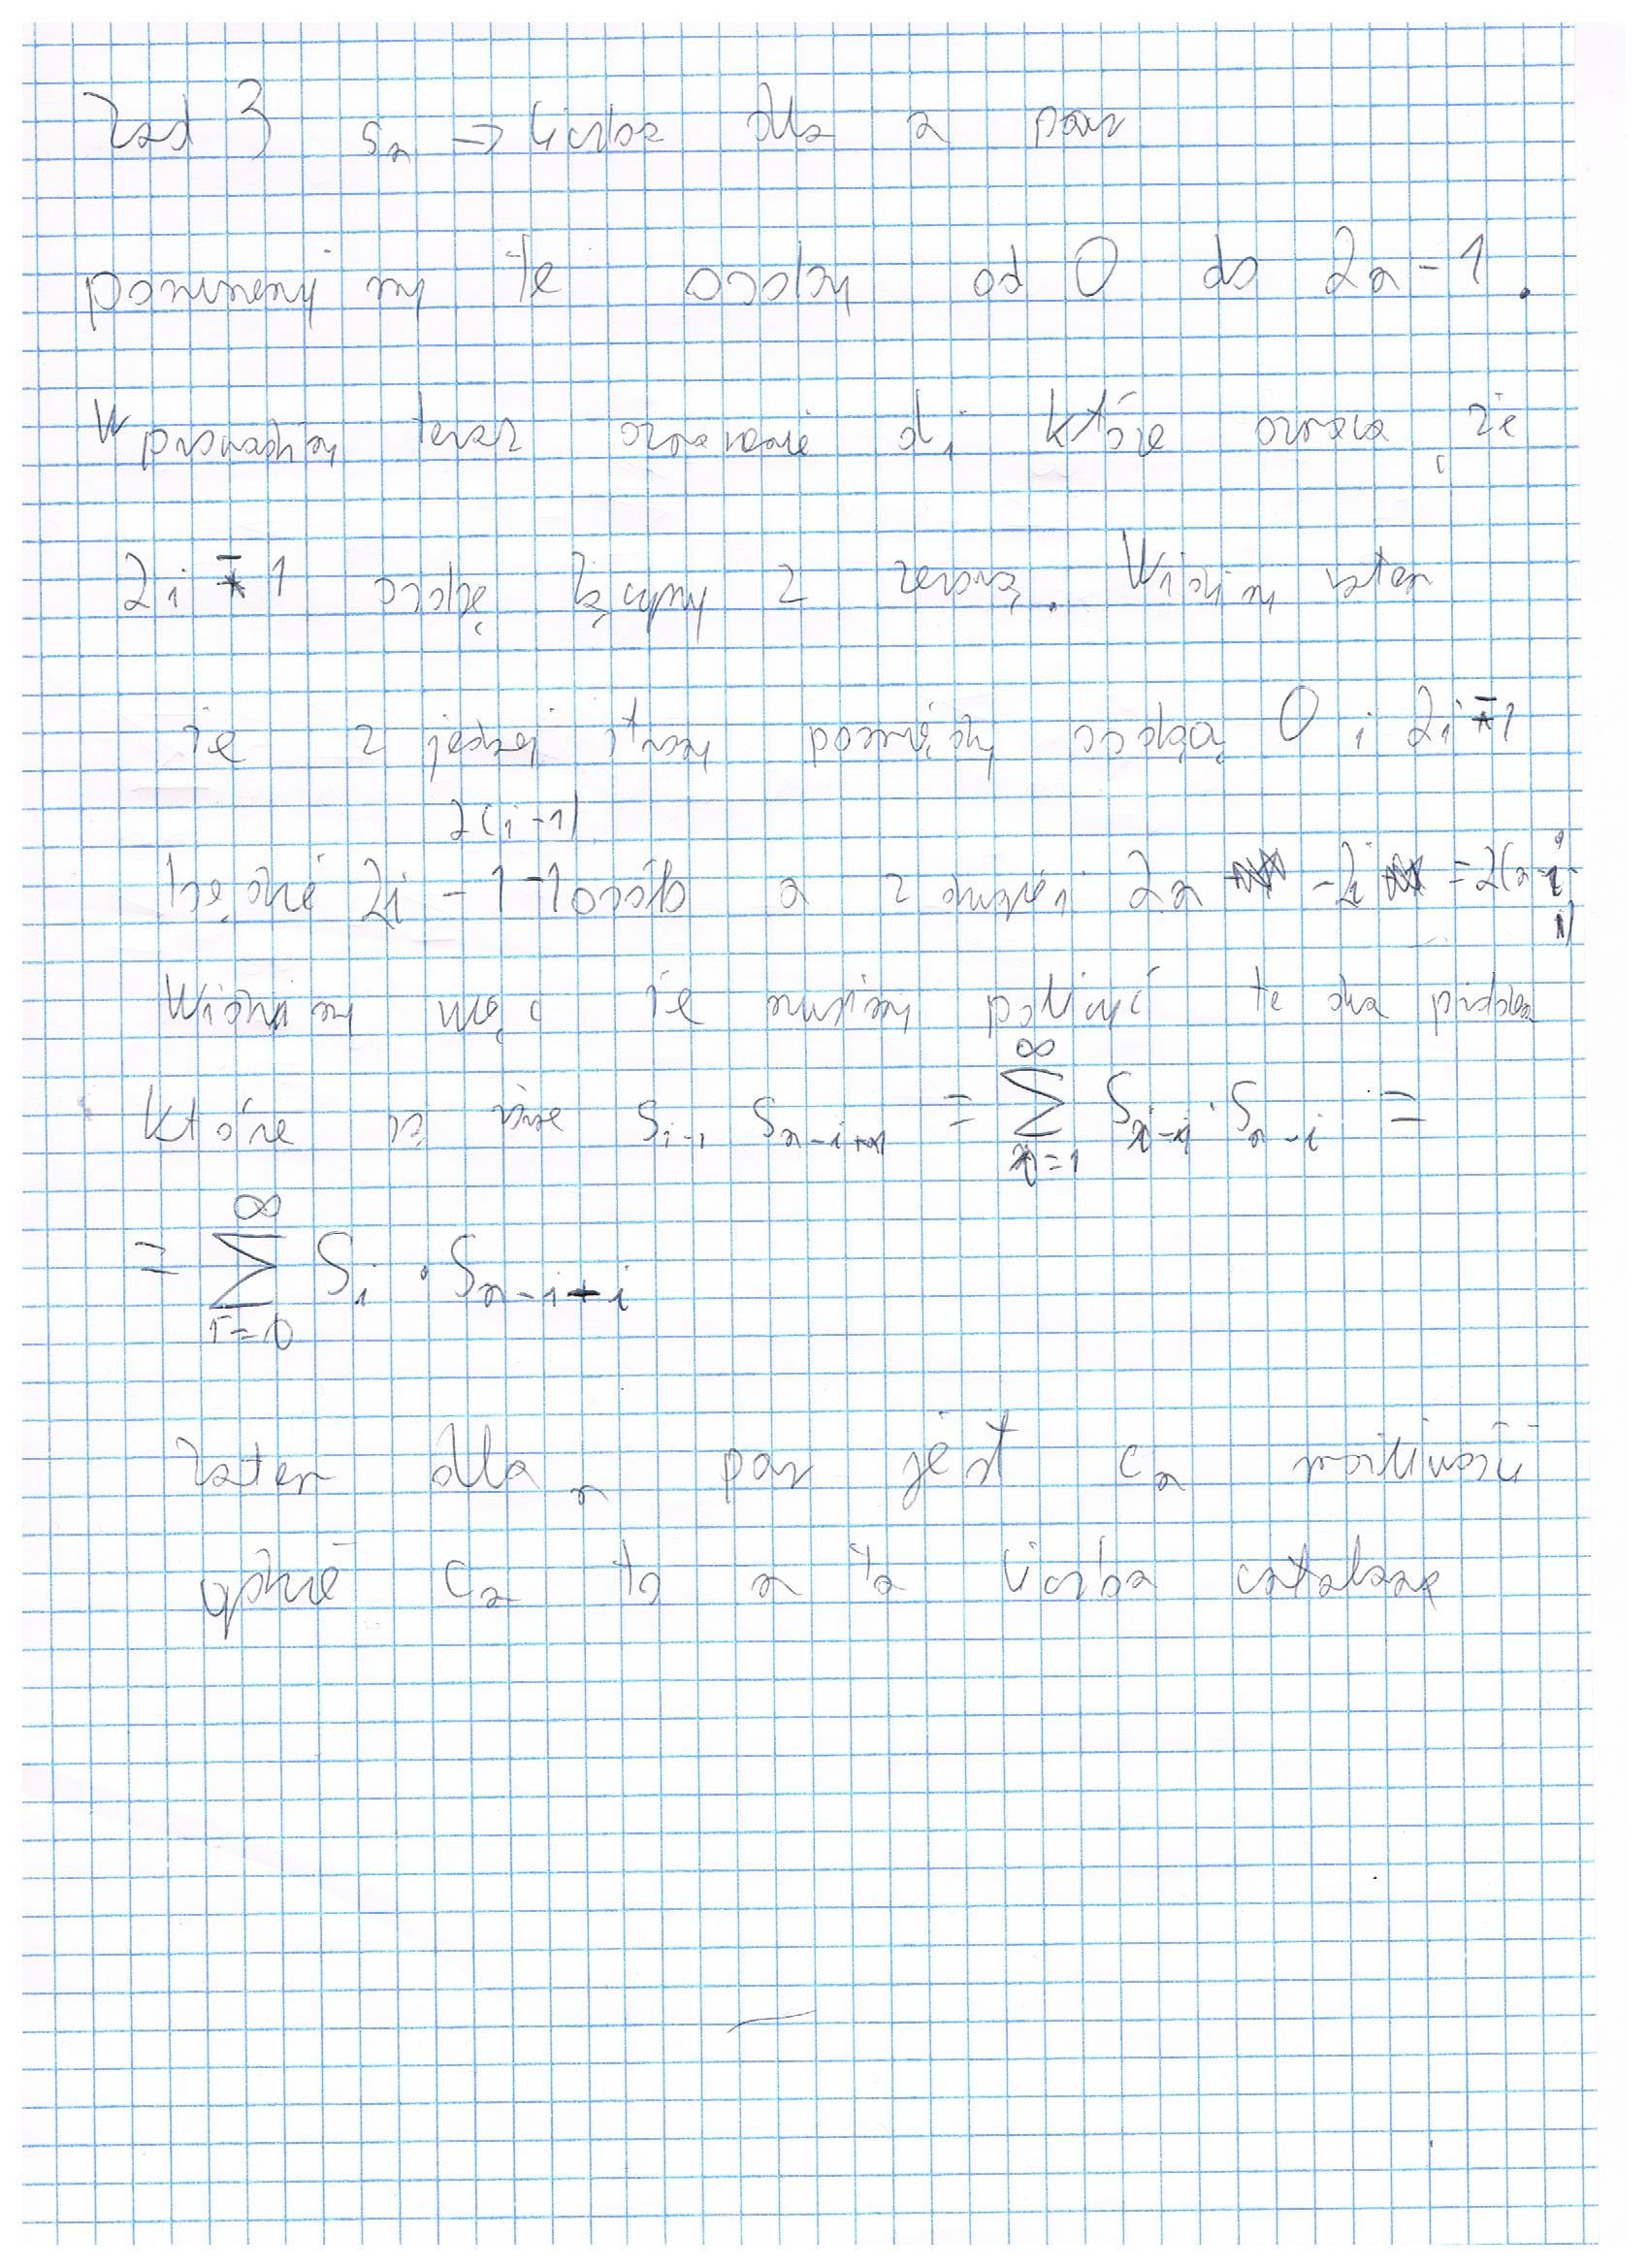 Zad 3 s_n → liczba dla n par
ponumerujmy te osoby od 0 do 2n-1.
Wprowadźmy teraz oznaczenie d_i które oznacza, że
2i-1 osobę łączymy z zerową. Widzimy zatem
że z jednej strony pomiędzy osobą 0 i 2i-1
2(i-1)
będzie 2i-1-1 osób a z drugiej 2n -2i =2(n-i)
Widzimy więc że musimy policzyć te dwa
które są równe S_{i-1} S_{n-i} = ∑_{i=1}^{∞} S_{i-1} · S_{n-i} =
= ∑_{i=0}^{∞} S_i · S_{n-i-1}
Zatem dla n par jest c_n możliwości
gdzie c_n to n ta liczba catalana